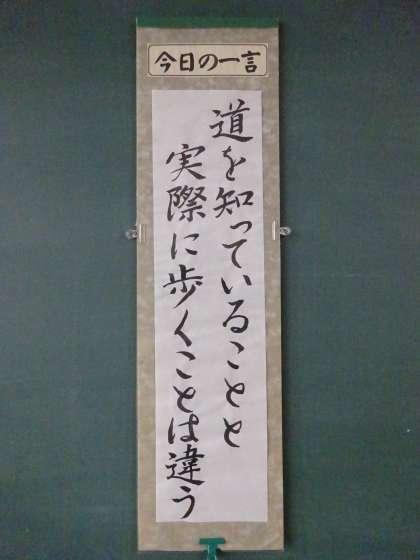 今日の一言
道を知っていることと
実際に歩くことは違う